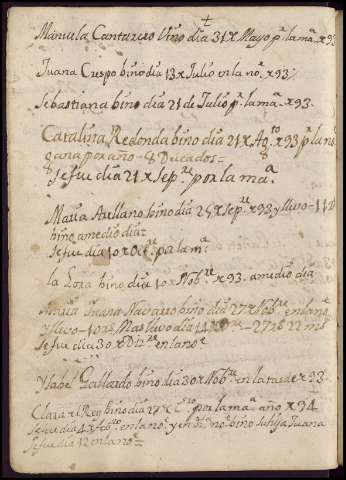 †
Manuela Canturero bino dia 31 x Mayo pr. la ma. x 93
Juana Crespo bino dia 13 x Julio en la no. x 93
Sebastiana bino dia 21 de Julio pr. la ma. x 93.
Catalina Redonda bino dia 21 x Ag.to x 93 pr la no
gana por año - 8 Ducados =
se fue dia 21 x Sep.re por la ma.
Maria Arellano bino dia 25 x Sep.re x 93 y llivo - 11
bino a medio dia =
se fue dia 10 x Oc.re por la ma.
la Lora bino dia 10 x Nob.re x 93. a medio dia
Maria Juana Navarro bino dia 27 x Nob.re en la no
y llivo - 10 mas llivo dia 14 x - 27 22 ms
se fue dia 30 x Diz.re en la no
Ysabel Gallardo bino dia 30 x Nob.re en la tarde x 93.
Clara el Rey bino dia 27 x E.ro por la ma. año x 94
se fue dia 4 x feb.ro en la no. y en no. bino su hija Juana
se fue dia 12 en la no =